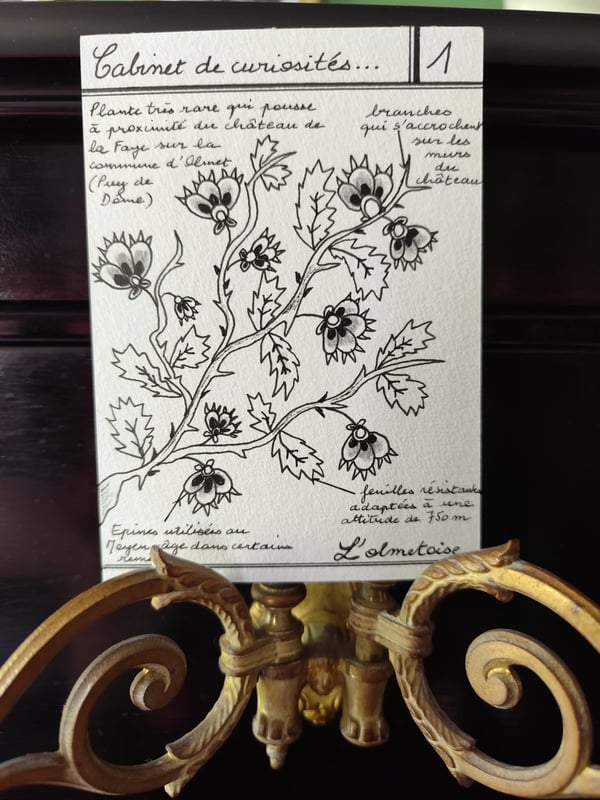 Cabinet de curiosités...
1
Plante très rare qui pousse
à proximité du château de
la Faye sur la
commune d'Olmet
(Puy de
Dôme)
branches
qui s'accrochent
sur les
murs
du
château
feuilles résistantes
adaptées à une
altitude de 750 m
Epines utilisées au
Moyen-Age dans certains
L'olmetoise